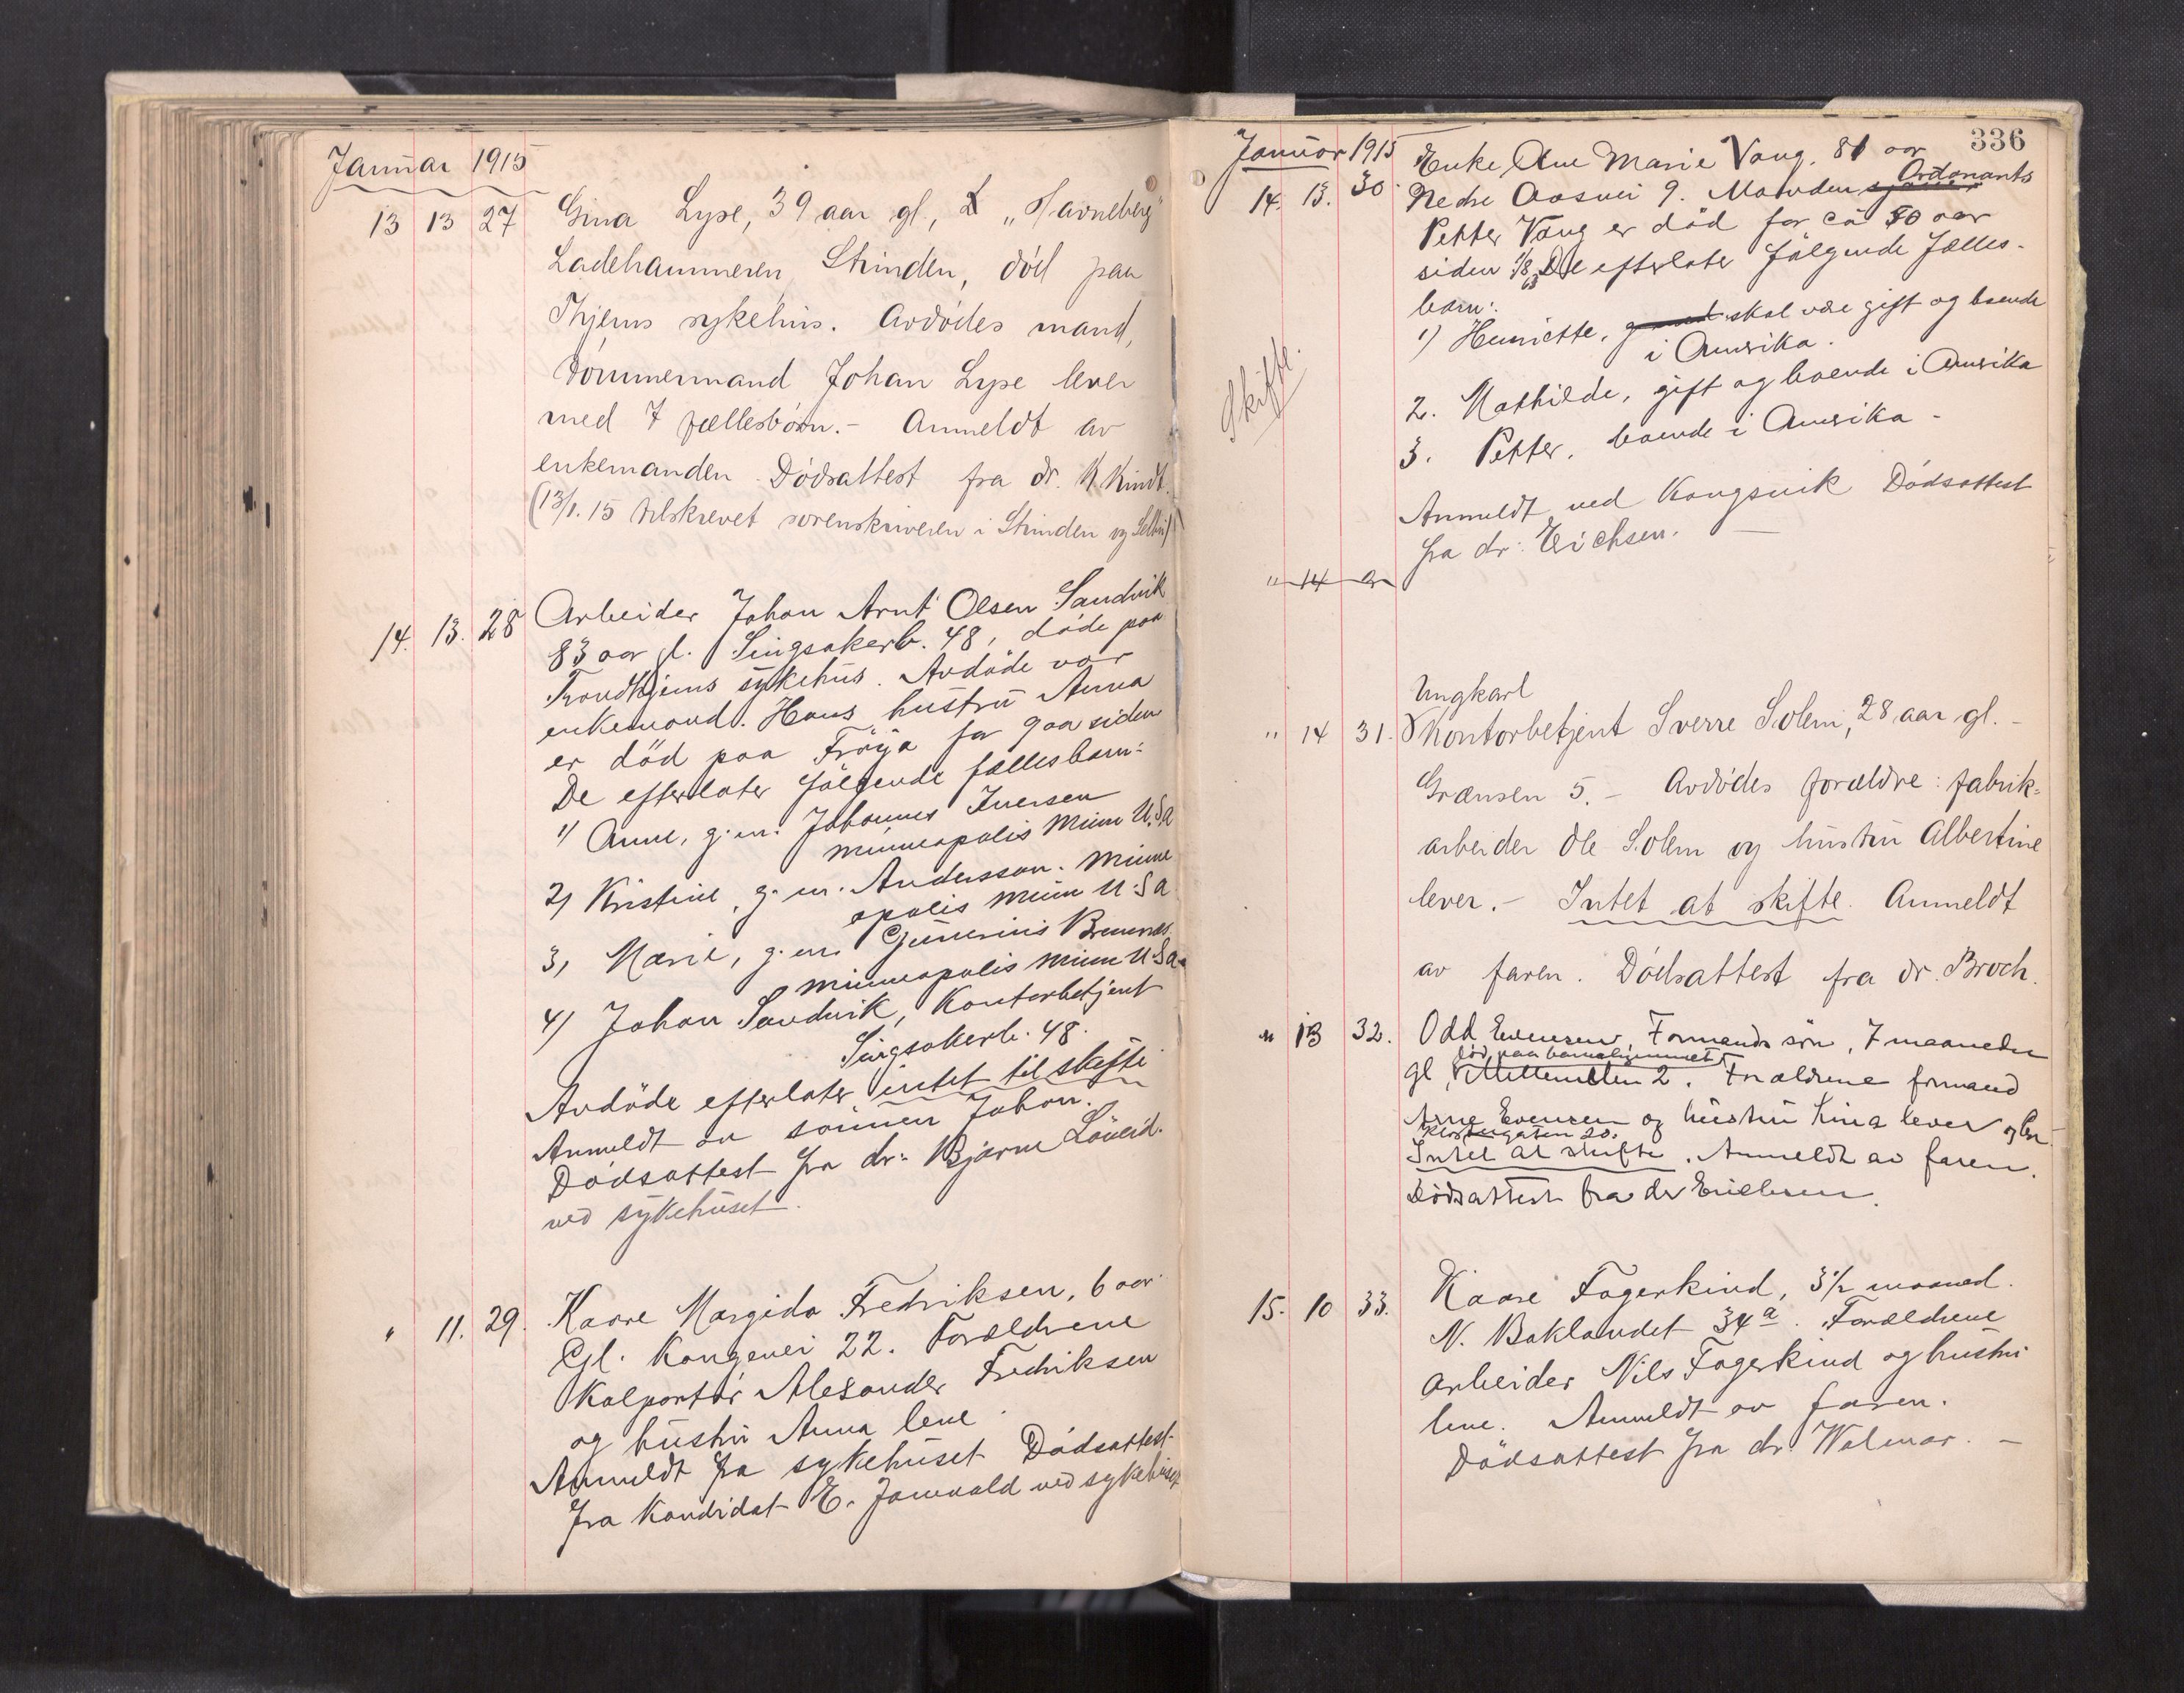 Januar 1915
13 13 27 Gina Lyse, 39 aar gl., "Havneberg"
Ladehammeren, Strinden, död paa
Thjems sykehus. Avdödes mand,
tömmermand Johan Lyse lever
med 7 fællesbörn. - Anmeldt av
enkemanden. Dödsattest fra dr. K. Kindt.
(13/1. 15 tilskrevet sorenskriveren i Strinden og Selbu)
14. 13. 28 Arbeider Johan Arnt Olsen Sandvik
83 aar gl. Singsakerb. 48, döde paa
Trondhjems sykehus. Avdöde var
enkemand. Hans hustru Anna
er död paa Fröya for 9 aa siden
De efterlater fölgende fællesbarn:
1) Anne, g.m. Johannes Iversen
Minneapolis Minn U.S.A
2) Kristine, g.m. Andersson. Minne
apolis Minn U.S.A
3) Marie, g.m. Gunerius Bremnes
Minneapolis Minn U.S.A.
4) Johan Sandvik, Kontorbetjent
Singsakerb. 48.
Avdöde efterlater intet til skifte
Anmeldt av sönnen Johan.
Dödsattest fra dr. Bjarne Löveid.
ved sykehuset.
" 11. 29. Kaare Margido Fredriksen, 6 aar
Gl. Kongevei 22. Forældrene
Kolportör Alexander Fredriksen
og hustru Anna leve.
Anmeldt fra sykehuset Dödsattest
fra Kandidat E. Jamvold ved sykehuset
336
Januar 1915
14. 13. 30. Enke Ane Marie Vang. 81 aar
Ordonants
Nedre Aasvei 9. Manden
Petter Vang er död for ca 50 aar
siden 1/8 63 De efterlater fölgende fælles-
barn:
1) Henriette, skal være gift og boende
i Amerika.
2. Mathilde, gift og boende i Amerika
3. Petter, boende i Amerika -
Skifte.
Anmeldt ved Kongsvik Dödsattest
fra dr. Erichsen. -
" 14
Ungkarl
" 14 31. Kontorbetjent Sverre Solem, 28 aar gl. -
Grænsen 5. - Avdödes forældre: fabrik-
arbeider Ole Solem og hustru Albertine
lever. - Intet at skifte. Anmeldt
av faren. Dödsattest fra dr. Broch.
" 13 32. Odd Evensen, Formands sön, 7 maaneder
död paa barnehjemmet
gl, Mellemilen 2. Forældrene formand
Arne Evensen og hustru Lina lever
Klostergaten 20.
Intet at skifte. Anmeldt av faren.
Dödsattest fra dr Erichsen.
15. 10 33. Kaare Fagerkind, 3 1/2 maaned.
N. Baklandet 34a. Forældrene
arbeider Nils Fagerkind og hustru
leve. Anmeldt av faren.
Dödsattest fra dr. Wolmar. -